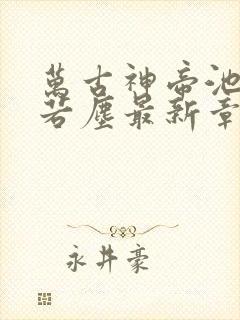 萬古神帝池
若塵最新章
永井豪